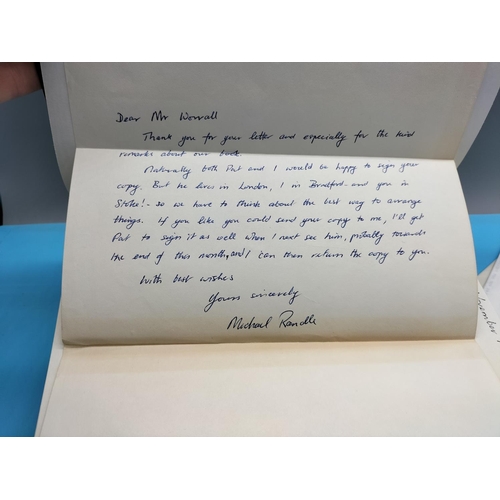 Dear Mr Worrall
Thank you for your letter and especially for the kind
remarks about our book.
Naturally both Pat and I would be happy to sign your
copy. But he lives in London, I in Bradford - and you in
Stoke! - so we have to think about the best way to arrange
things. If you like you could send your copy to me, I'll get
Pat to sign it as well when I next see him, probably towards
the end of this month, and I can then return the copy to you.
With best wishes
Yours sincerely
Michael Randle
November